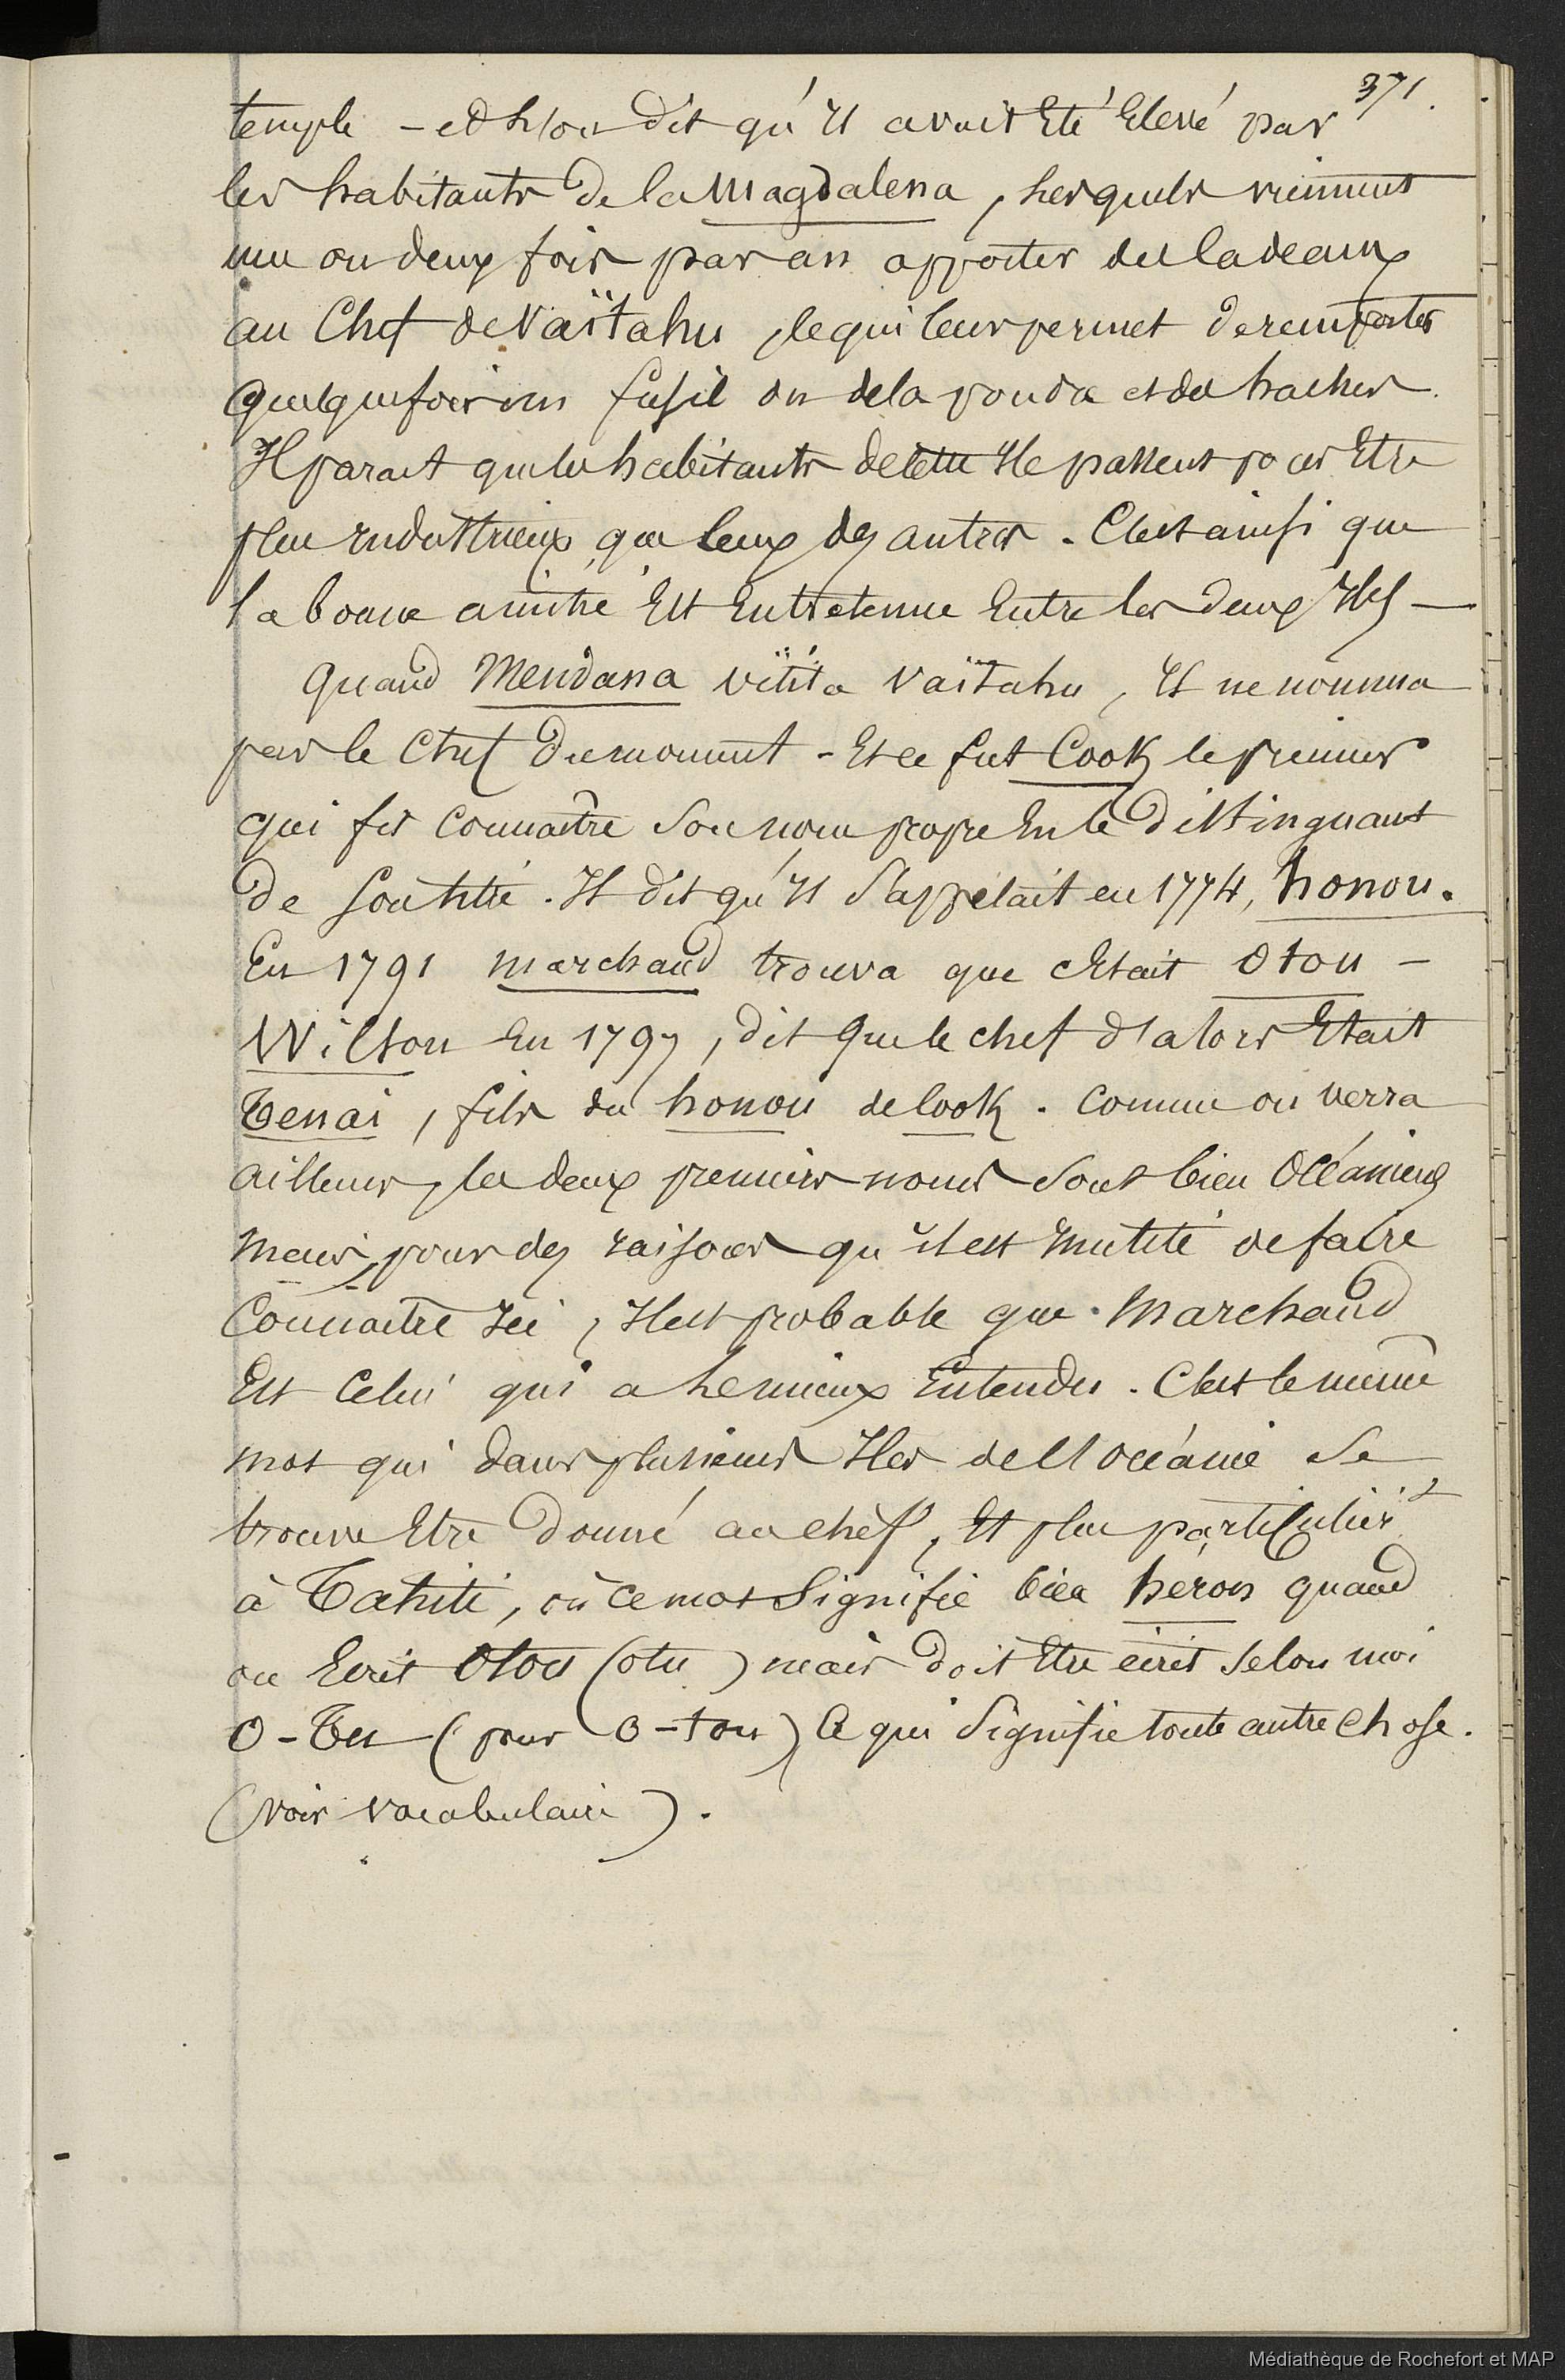 371.
temple – et l'on dit qu'il avait Eté Elevé par
les habitants de la Magdalena, lesquels viennent
une ou deux fois par an apporter des Cadeaux
au Chef de Vaïtahu, lequi leur permet de remporter
quelquefois un fusil ou de la poudre et des haches.
Il parait que les habitants de cette Ile passent pour Etre
plus industrieux que ceux des autres. C'est ainsi que
la bonne amitié Est Entretenue Entre les deux Iles –
Quand Mendana visita Vaïtahu, Il ne nomma
pas le Chef du moment – Et ce fut Cook le premier
qui fit connaître son nom propre En le distinguant
de son titre. Il dit qu'Il s'appelait en 1774, honou.
En 1791 marchand trouva que c'Etait Otou –
Wilson En 1797, dit que le chef d'alors Etait
Tenai, fils du honou de Cook. Comme on verra
ailleurs, les deux premiers noms sont bien Océaniens
mais, pour des raisons qu'il est Inutile de faire
Connaitre Ici, Il est probable que Marchand
Est Celui qui a le mieux Entendu. C'est le même
mot qui dans plusieurs Iles de l'Océanie se
trouve Etre donné au chef, Et plus particulièrt
à Tahiti, où ce mot Signifie bien héron quand
on Ecrit Otou (otu) mais doit Etre écrit selon moi
O-Tu (pour O-tou) Ce qui Signifie toute autre chose.
(voir vocabulaire).
Médiathèque de Rochefort et MAP